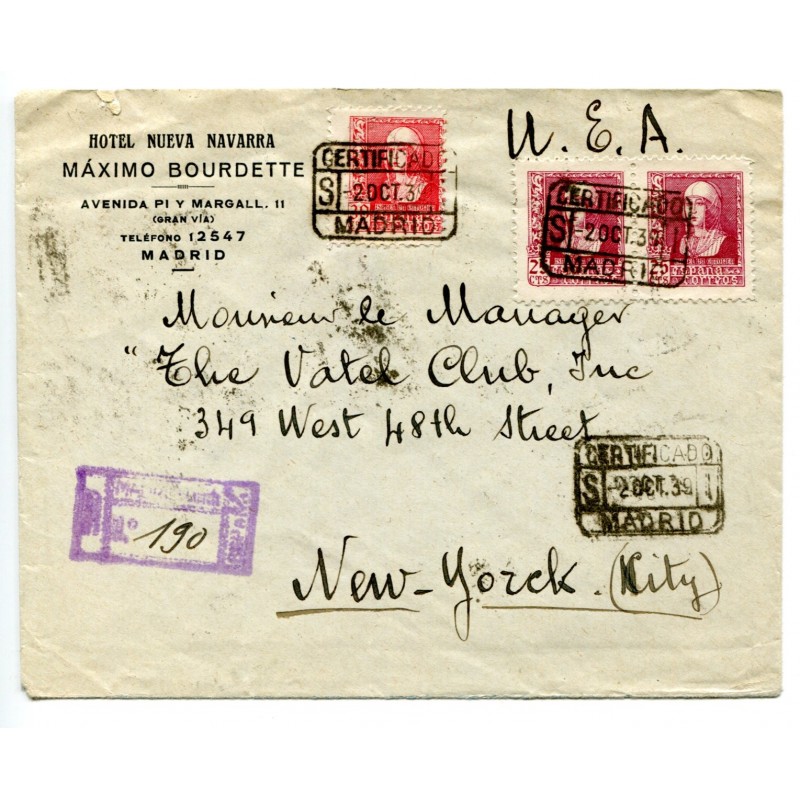 HOTEL NUEVA NAVARRA
MÁXIMO BOURDETTE
AVENIDA PI Y MARGALL. 11
(GRAN VÍA)
TELÉFONO 12547
MADRID
CERTIFICADO
S -2 OCT.3
MADRID
U.E.A.
CERTIFICADO
S -2 OCT.39 1
MADRI
25 CTS
25 CTS
ESPAÑA
CORREOS
Monsieur le Manager
"The Vatel Club, Inc
349 West 48th Street
CERTIFICADO
S -2 OCT.39 1
MADRID
190
New-Yorck. (Kity)